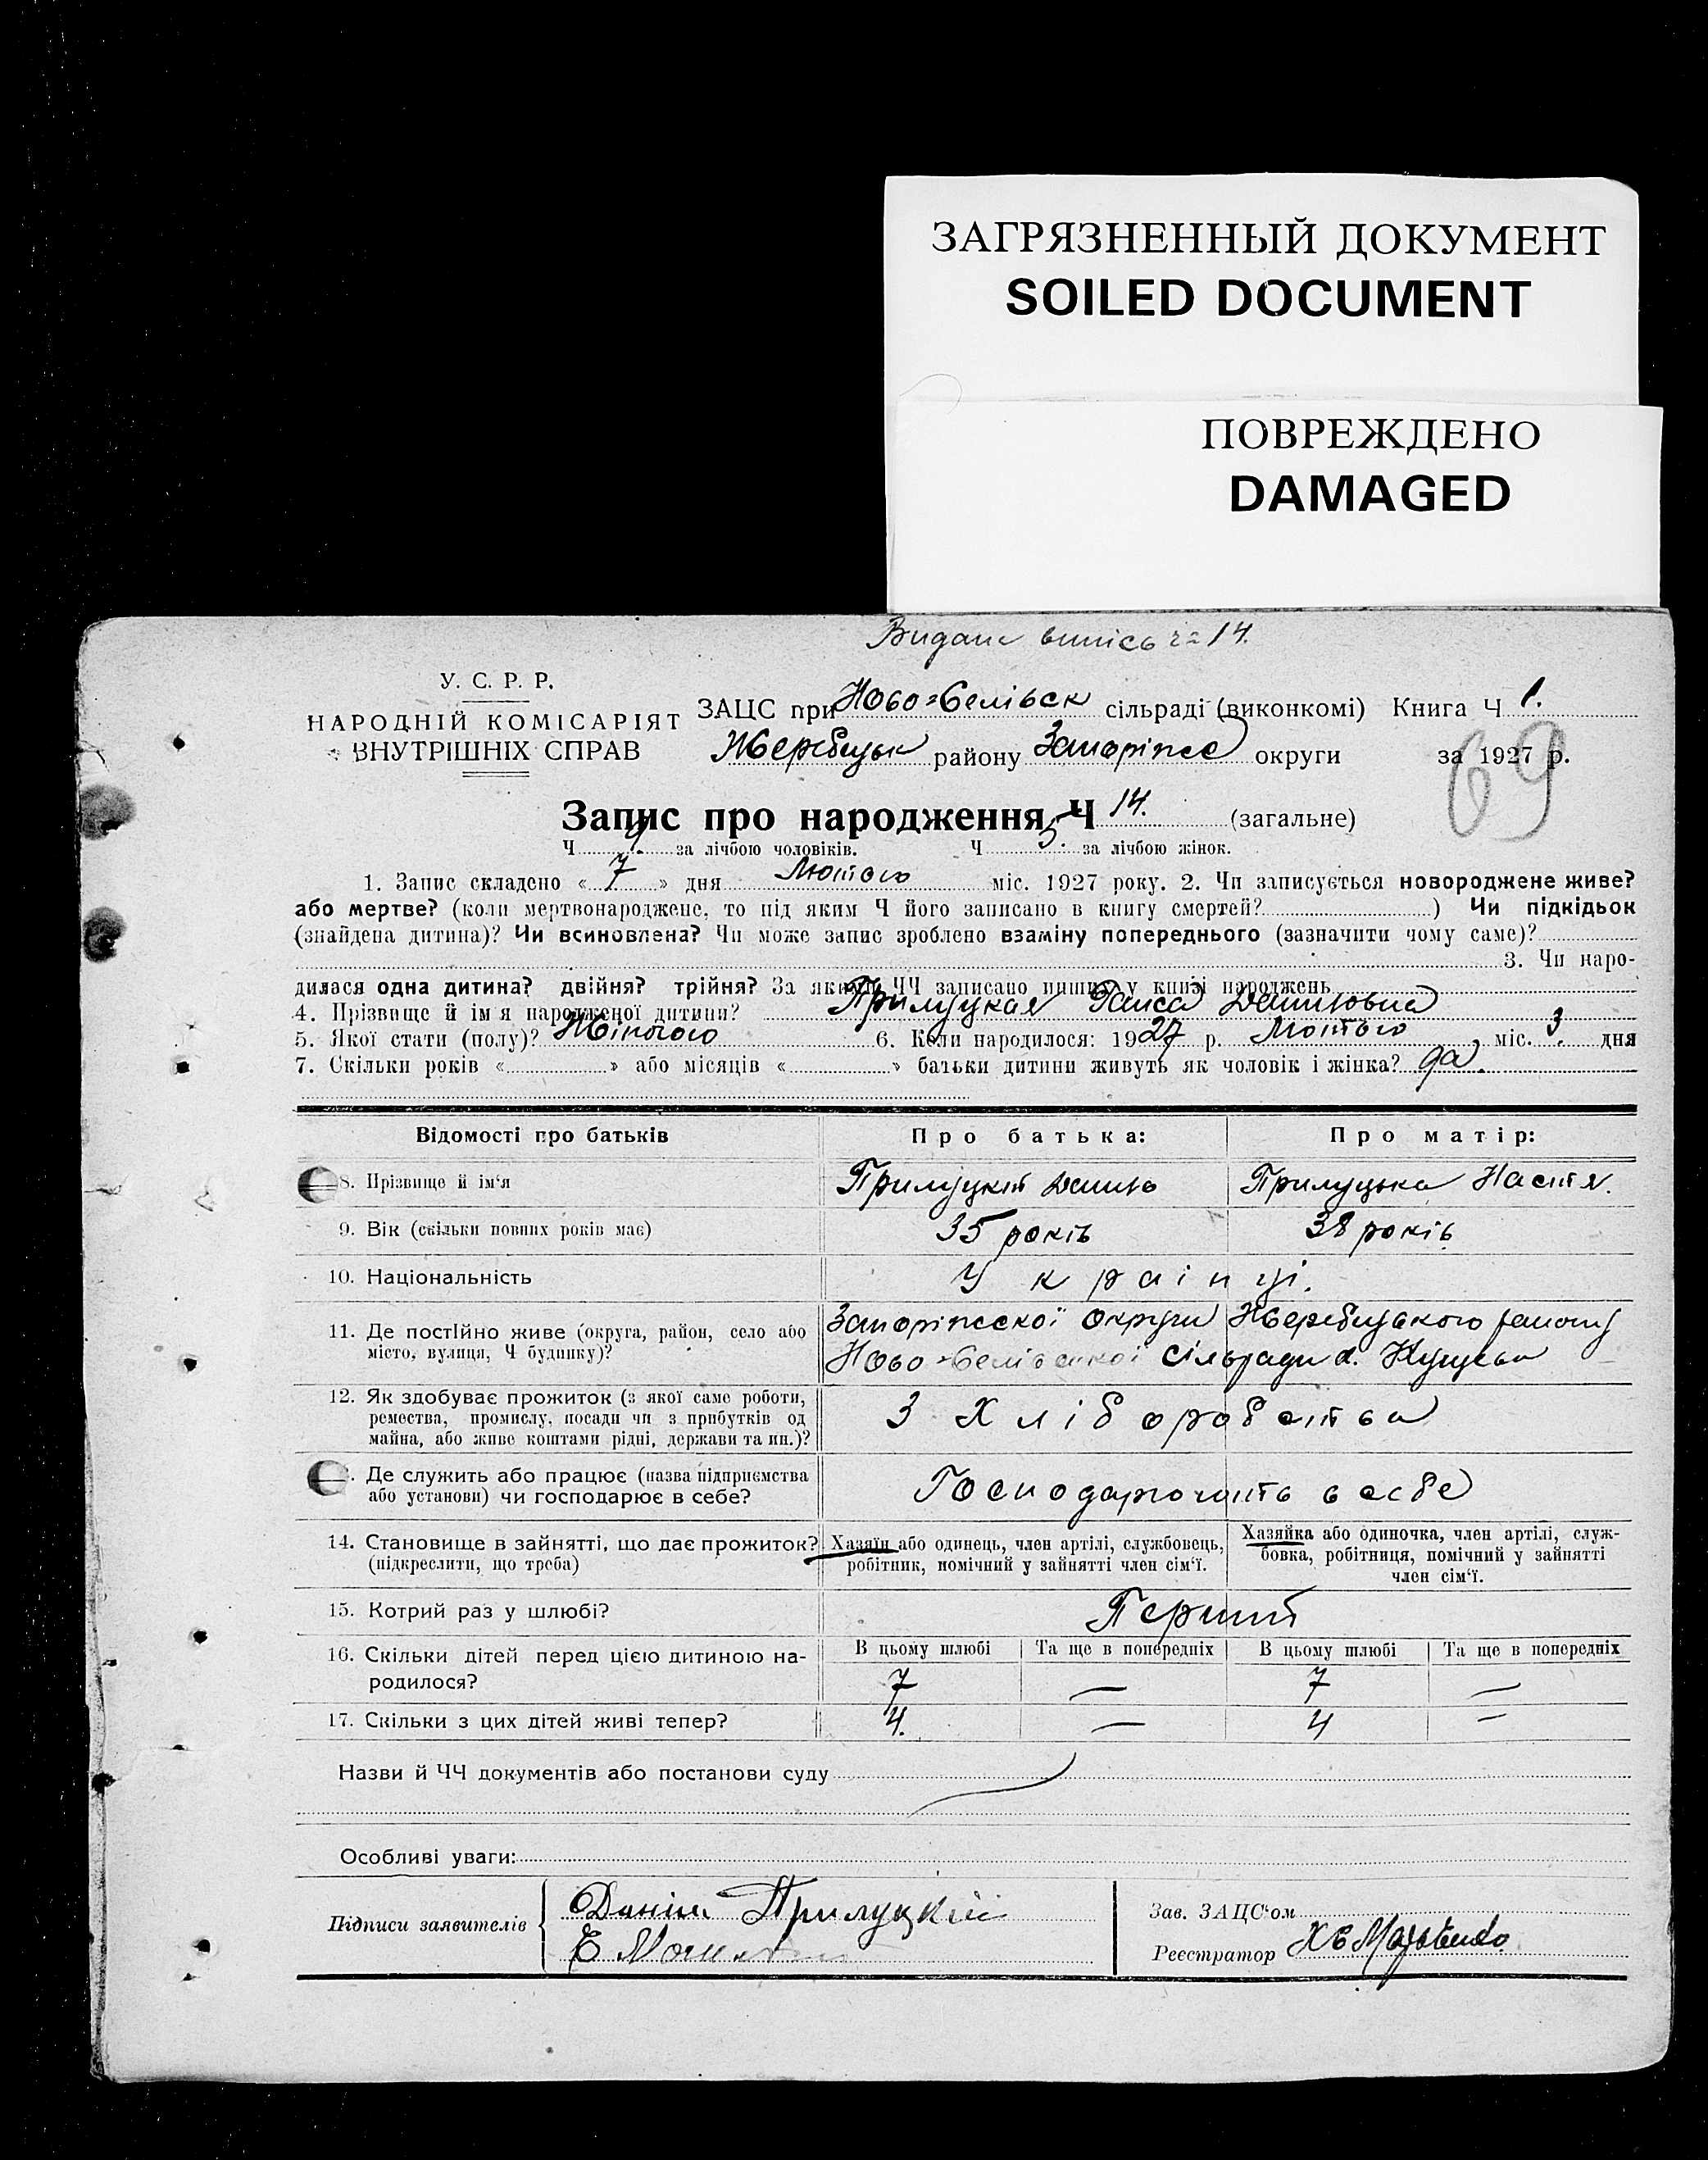 ЗАГРЯЗНЕННЫЙ ДОКУМЕНТ
SOILED DOCUMENT
ПОВРЕЖДЕНО
DAMAGED
Видана випись 14.
У. С. Р. Р.
НАРОДНІЙ КОМІСАРІЯТ
ВНУТРІШНІХ СПРАВ
ЗАЦС при сільраді (виконкомі) Книга Ч 1.
Жеребецьк району Запоріжсс округи за 1927 р.
69
Запис про народження Ч 14. (загальне)
Ч 9. за лічбою чоловіків. Ч 5. за лічбою жінок.
1. Запис складено « 7 » дня Лютого міс. 1927 року. 2. Чи записується новороджене живе?
або мертве? (коли мертвонароджене, то під яким Ч його записано в книгу смертей? ) Чи підкідьок
(знайдена дитина)? Чи всиновлена? Чи може запис зроблено взаміну попереднього (зазначити чому саме)?
3. Чи наро-
дилася одна дитина? двійня? трійня? За якими ЧЧ записано инших у книзі народжень
4. Прізвище й ім'я народженої дитини? Прилуцкая Раиса Даниловна
5. Якої стати (полу)? Жіночого 6. Коли народилося: 1927 р. Лютого міс. 3. дня
7. Скільки років « » або місяців « » батьки дитини живуть як чоловік і жінка? да.
Відомості про батьків Про батька: Про матір:
8. Прізвище й ім'я Прилуцкій Данило Прилуцька Настя.
9. Вік (скільки повних років має) 35 років 38 років
10. Національність Українці.
11. Де постійно живе (округа, район, село або Запоріжської Округи Жеребецького району
місто, вулиця, Ч будинку)? сільради
12. Як здобуває прожиток (з якої саме роботи, З Хліборобства
ремества, промислу, посади чи з прибутків од
майна, або живе коштами рідні, держави та ин.)?
Де служить або працює (назва підприємства Господарюють в себе
або установи) чи господарює в себе?
14. Становище в зайнятті, що дає прожиток? Хазяїн або одинець, член артілі, службовець, Хазяйка або одиночка, член артілі, служ-
(підкреслити, що треба) робітник, помічний у зайнятті член сім'ї. бовка, робітниця, помічний у зайнятті
член сім'ї.
15. Котрий раз у шлюбі? Перший
16. Скільки дітей перед цією дитиною на- В цьому шлюбі Та ще в попередніх В цьому шлюбі Та ще в попередніх
родилося? 7 — 7 —
17. Скільки з цих дітей живі тепер? 4. — 4 —
Назви й ЧЧ документів або постанови суду
Особливі уваги:
Підписи заявителів Даніил Прилуцкій Зав. ЗАЦС'ом
Реєстратор